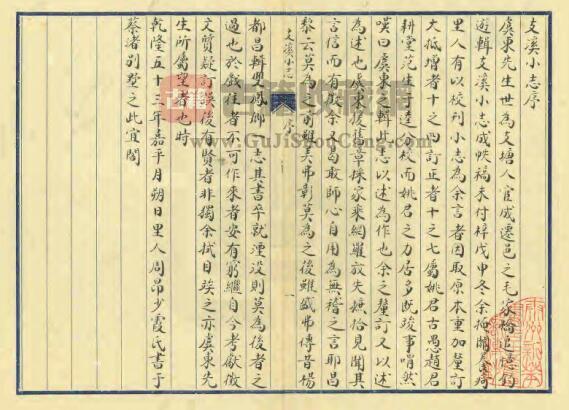 支溪小志序
虞東先生世為支塘人官成遷邑之
遊輯支溪小志成帙稿未付梓戊申冬余
里人有以校刊小志為余言者因取原本重加釐訂
大抵增者十之四訂正者十之七屬姚君古愚趙君
耕堂范生于達分校而姚君之力居多既竣事喟然
嘆曰虞東之輯此志以述為作也余之釐訂又以述
為述也虞東後舊章採家乘網羅放失無拾見聞其
言信而有徵余又曷敢師心自用為無稽之言耶昌
黎云莫為之前雖美弗彰莫為之後雖盛弗傳昔楊
支溪小志
序
一
都昌輯雙鳳鄉一志其書卒就湮沒則莫為後者之
過也於戲往者不可作來者安有窮繼自今考獻徵
文質疑訂誤後有賢者非獨余拭目俟之亦虞東先
生所屬望者也時
乾隆五十三年嘉平月朔日里人周昂少霞氏書于
蔡渚別墅之此宜閣
www.GuJiShouCang.com